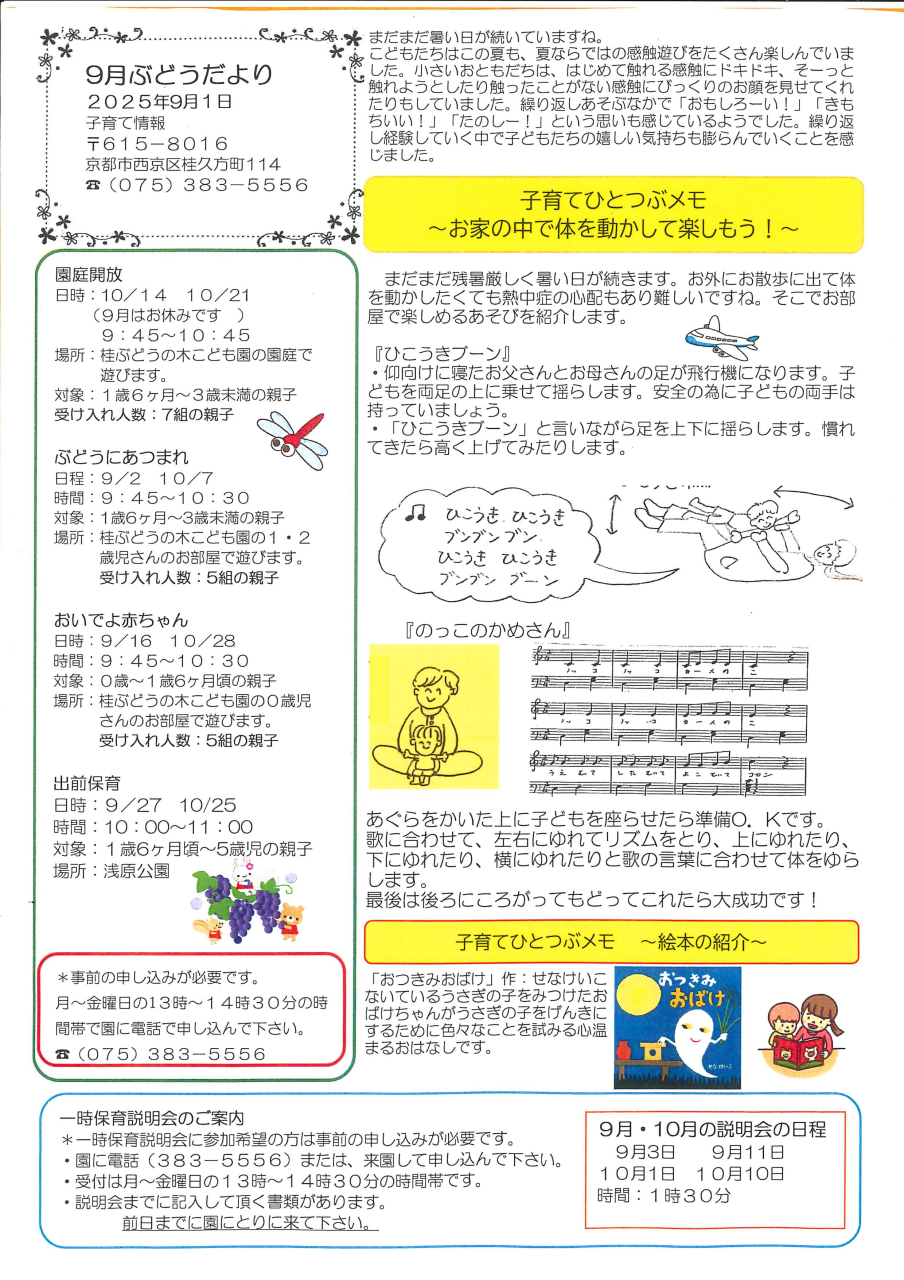 9月ぶどうだより
2025年9月1日
子育て情報
〒615-8016
京都市西京区桂久方町114
☎(075)383-5556
まだまだ暑い日が続いていますね。
こどもたちはこの夏も、夏ならではの感触遊びをたくさん楽しんでいま
した。小さいおともだちは、はじめて触れる感触にドキドキ、そーっと
触れようとしたり触ったことがない感触にびっくりのお顔を見せてくれ
たりもしていました。繰り返しあそぶなかで「おもしろーい!」「きも
ちいい!」「たのしー!」という思いも感じているようでした。繰り返
し経験していく中で子どもたちの嬉しい気持ちも膨らんでいくことを感
じました。
子育てひとつぶメモ
~お家の中で体を動かして楽しもう!~
まだまだ残暑厳しく暑い日が続きます。お外にお散歩に出て体
を動かしたくても熱中症の心配もあり難しいですね。そこでお部
屋で楽しめるあそびを紹介します。
『ひこうきブーン』
・仰向けに寝たお父さんとお母さんの足が飛行機になります。子
どもを両足の上に乗せて揺らします。安全の為に子どもの両手は
持っていましょう。
・「ひこうきブーン」と言いながら足を上下に揺らします。慣れ
てきたら高く上げてみたりします。
♫ ひこうき ひこうき
ブンブンブン
ひこうき ひこうき
ブンブン ブーン
『のっこのかめさん』
ノッコ ノッコ かーめの こ
ノッコ ノッコ かーめの こ
うえむいて したむいて よこむいて コロン
あぐらをかいた上に子どもを座らせたら準備O.Kです。
歌に合わせて、左右にゆれてリズムをとり、上にゆれたり、
下にゆれたり、横にゆれたりと歌の言葉に合わせて体をゆら
します。
最後は後ろにころがってもどってこれたら大成功です!
子育てひとつぶメモ ~絵本の紹介~
「おつきみおばけ」作:せなけいこ
ないているうさぎの子をみつけたお
ばけちゃんがうさぎの子をげんきに
するために色々なことを試みる心温
まるおはなしです。
おつきみ
おばけ
せなけいこ
園庭開放
日時:10/14 10/21
(9月はお休みです )
9:45~10:45
場所:桂ぶどうの木こども園の園庭で
遊びます。
対象:1歳6ヶ月~3歳未満の親子
受け入れ人数:7組の親子
ぶどうにあつまれ
日程:9/2 10/7
時間:9:45~10:30
対象:1歳6ヶ月~3歳未満の親子
場所:桂ぶどうの木こども園の1・2
歳児さんのお部屋で遊びます。
受け入れ人数:5組の親子
おいでよ赤ちゃん
日時:9/16 10/28
時間:9:45~10:30
対象:0歳~1歳6ヶ月頃の親子
場所:桂ぶどうの木こども園の0歳児
さんのお部屋で遊びます。
受け入れ人数:5組の親子
出前保育
日時:9/27 10/25
時間:10:00~11:00
対象:1歳6ヶ月頃~5歳児の親子
場所:浅原公園
*事前の申し込みが必要です。
月~金曜日の13時~14時30分の時
間帯で園に電話で申し込んで下さい。
☎(075)383-5556
一時保育説明会のご案内
*一時保育説明会に参加希望の方は事前の申し込みが必要です。
・園に電話(383-5556)または、来園して申し込んで下さい。
・受付は月~金曜日の13時~14時30分の時間帯です。
・説明会までに記入して頂く書類があります。
前日までに園にとりに来て下さい。
9月・10月の説明会の日程
9月3日 9月11日
10月1日 10月10日
時間:1時30分